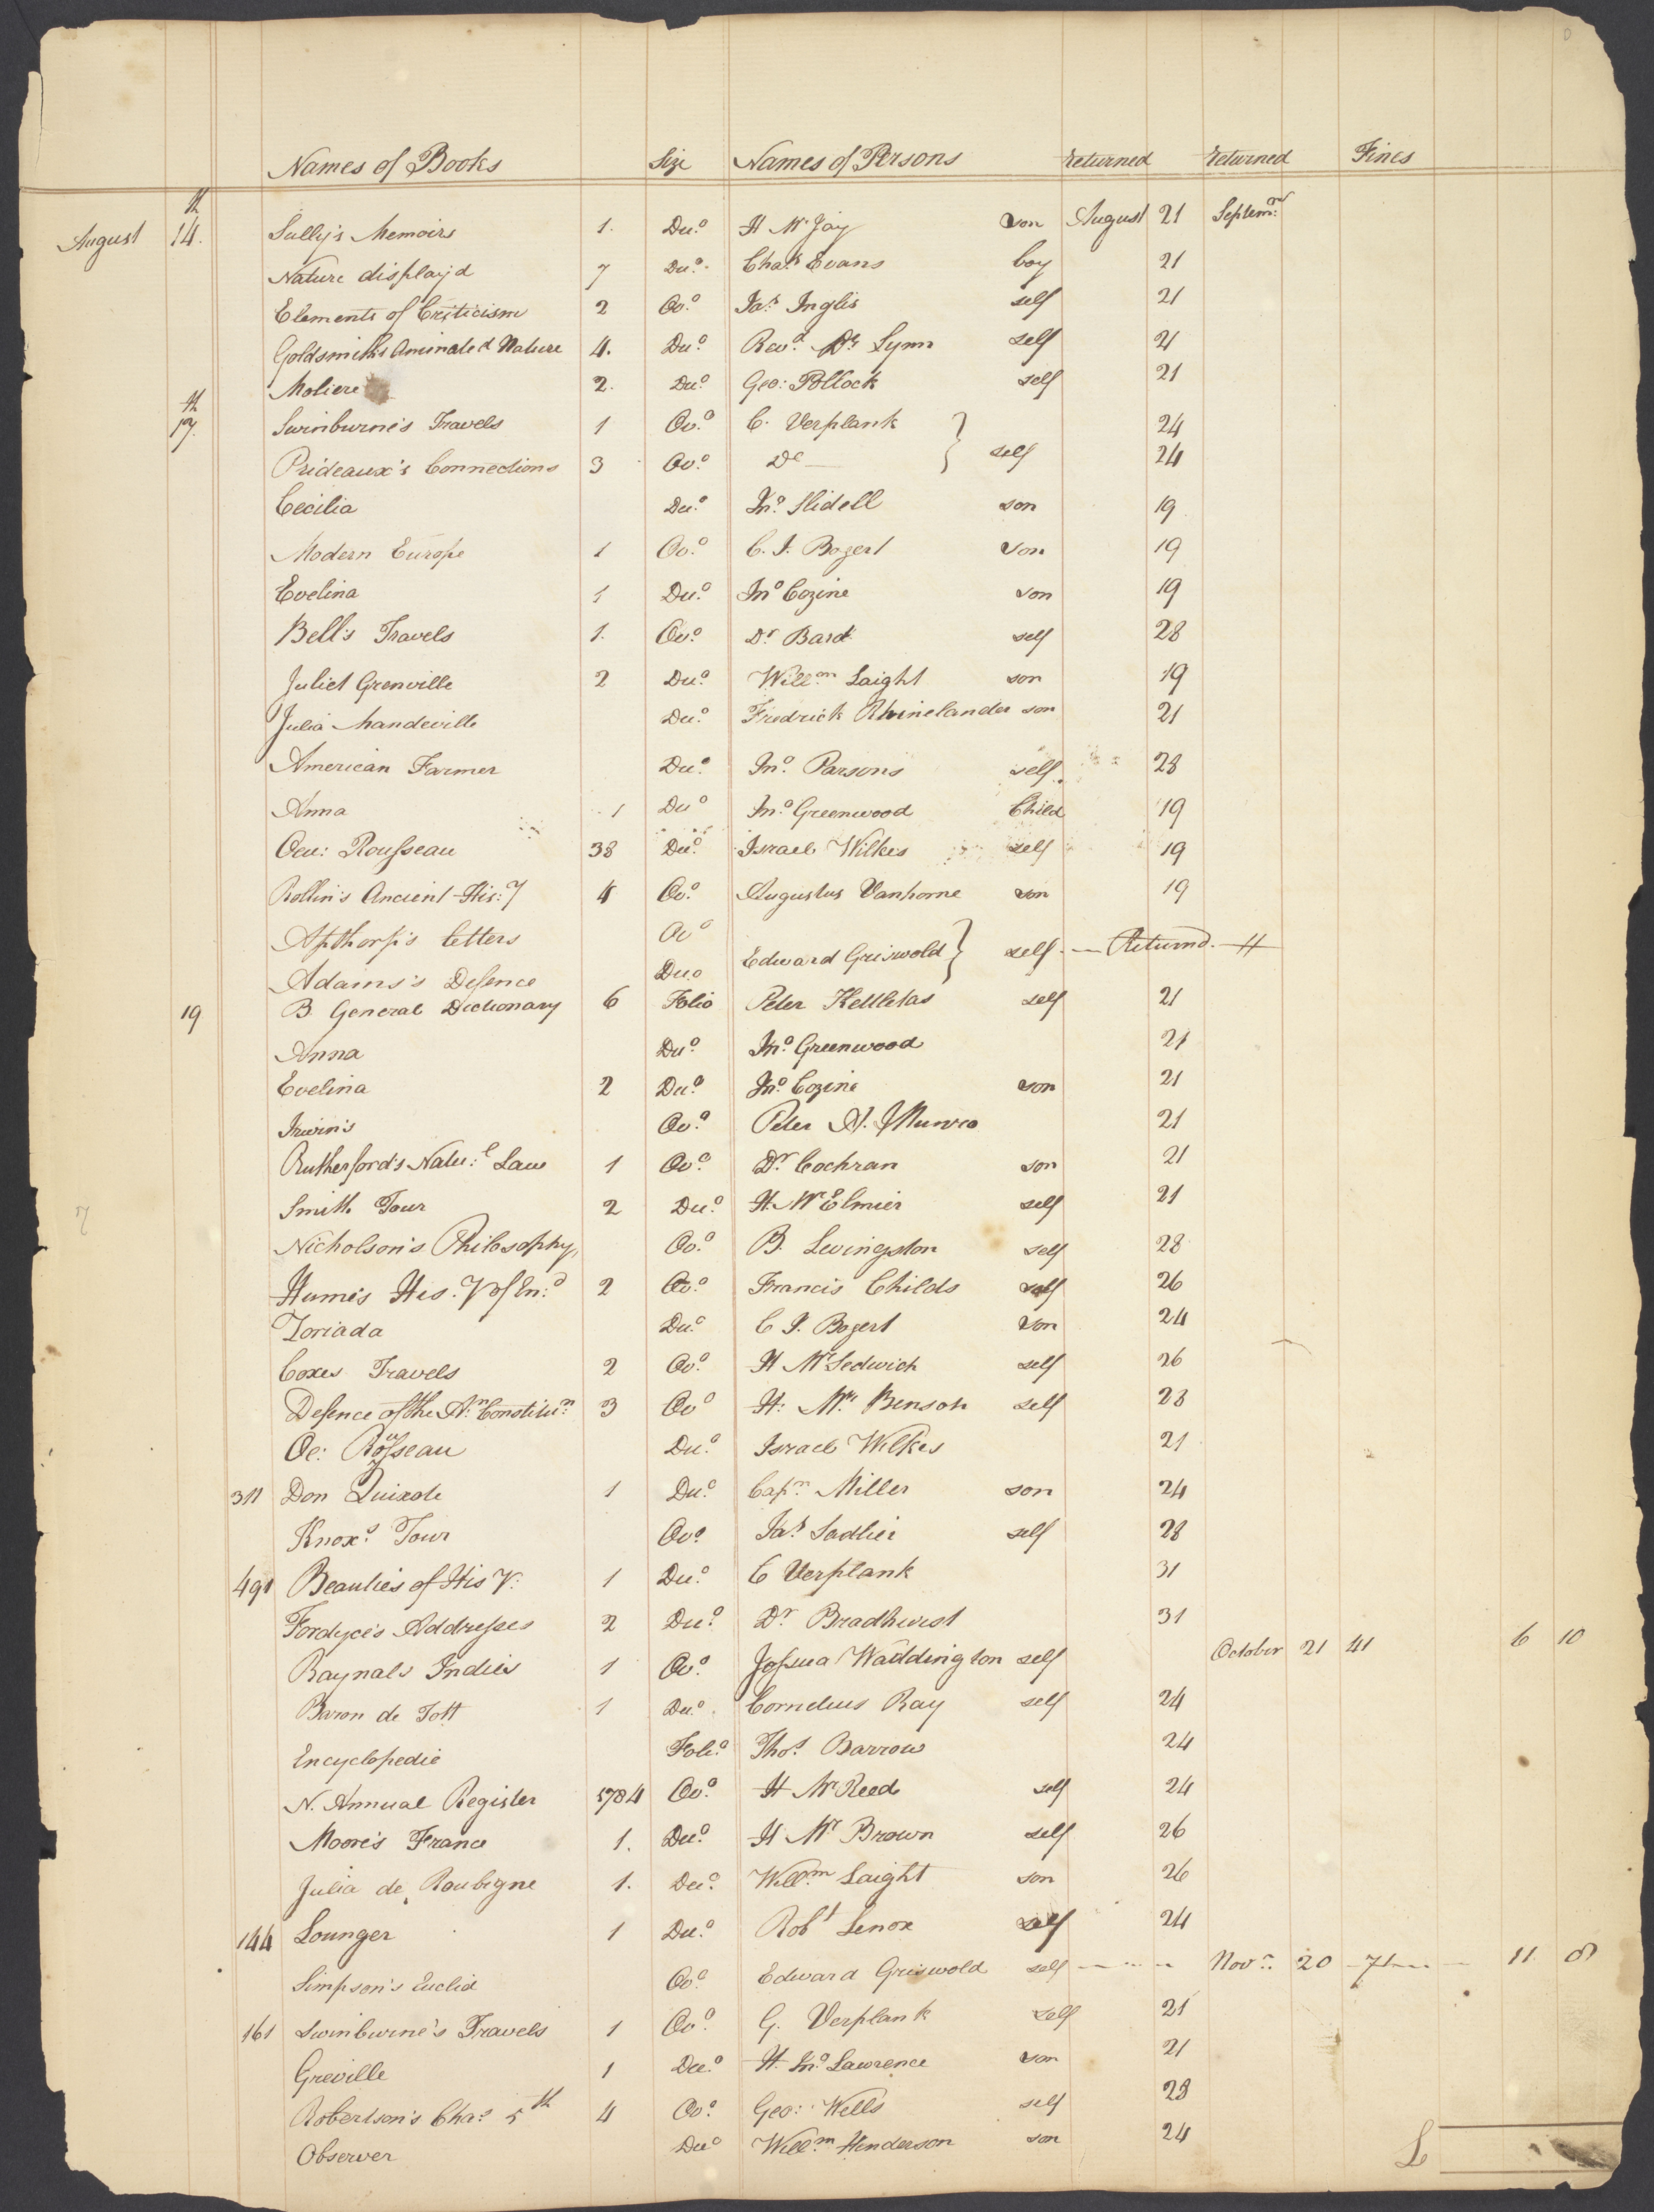 Names of Books Size Names of Persons returned returned Fines
August 14.th Sully's Memoirs 1. Du.o H Mr Jay son August 21 Septem.
Nature display'd 7 Du.o Cha.s Evans boy 21
Elements of Criticism 2 Ov.o Ja.s Inglis self 21
Goldsmith's Aminated Nature 4. Du.o Rev.d Dr Lynn self 21
Moliere 2. Du.o Geo: Pollock self 21
17.th Swinburne's Travels 1 Ov.o C. Verplank } 24
Prideaux's Connections 3 Ov.o Do — } self 24
Cecilia Du.o Jn.o Slidell son 19
Modern Europe 1 Ov.o C. J. Bogert son 19
Evelina 1 Du.o Jno Cozine son 19
Bell's Travels 1. Ov.o Dr Bard self 28
Juliet Grenville 2 Du.o Will.m Laight son 19
Julia Mandeville Du.o Fredrick Rhinelander son 21
American Farmer Du.o Jn.o Parsons self 28
Anna 1 Duo Jn.o Greenwood Child 19
Oeu: Rousseau 38 Du.o Israel Wilkes self 19
Rollin's Ancient His:y 4 Ov.o Augustus Vanhorne son 19
Apthorp's letters Ovo
Edward Griswold } self — Returnd. —
Adams's Defence Duo
19 B. General Dictionary 6 Folio Peter Kettletas self 21
Anna Du.o Jn.o Greenwood 21
Evelina 2 Du.o Jn.o Cozine son 21
Irwin's Ov.o Peter A. Munro 21
Rutherford's Natu:l Law 1 Ov.o Dr Cochran son 21
Smith Tour 2 Du.o H. Mr Elmier self 21
Nicholson's Philosophy Ov.o B. Levingston self 28
Hume's His.y of En:d 2 Ov.o Francis Childs self 26
Zoriada Du.o C J. Bogert son 24
Coxes Travels 2 Ov.o H Mr Sedwich self 26
Defence of the A:n Constitu:n 3 Ovo H: Mr. Benson self 28
Oe: Rousseau Du.o Israel Wilkes 21
311 Don Quixote 1 Du.o Cap.n Miller son 24
Knox.s Tour Ov.o Ja.s Sadlier self 28
491 Beauties of His y: 1 Du.o C Verplank 31
Fordyce's Addresses 2 Du.o Dr Bradhurst 31
Raynals Indies 1 Ov.o Joshua Waddington self October 21 41 6 10
Baron de Tott 1 Du.o Cornelius Ray self 24
Encyclopedie Foli.o Tho.s Barrow 24
N. Annual Register 1784 Ov.o H Mr Reed self 24
Moore's France 1. Du.o H Mr Brown self 26
Julia de Roubigne 1. Du.o Will.m Laight son 26
144 Lounger 1 Du.o Robt Lenox self 24
Simpson's Euclid Ov.o Edward Griswold self — Nov.r 20 71 — 11. 8
161 Swinburne's Travels 1 Ov.o G. Verplank self 21
Greville 1 Du.o H. Jn.o Lawrence son 21
Robertson's Cha.s 5th 4 Ov.o Geo: Wells self 28
Observer Duo Will.m Henderson son 24
£